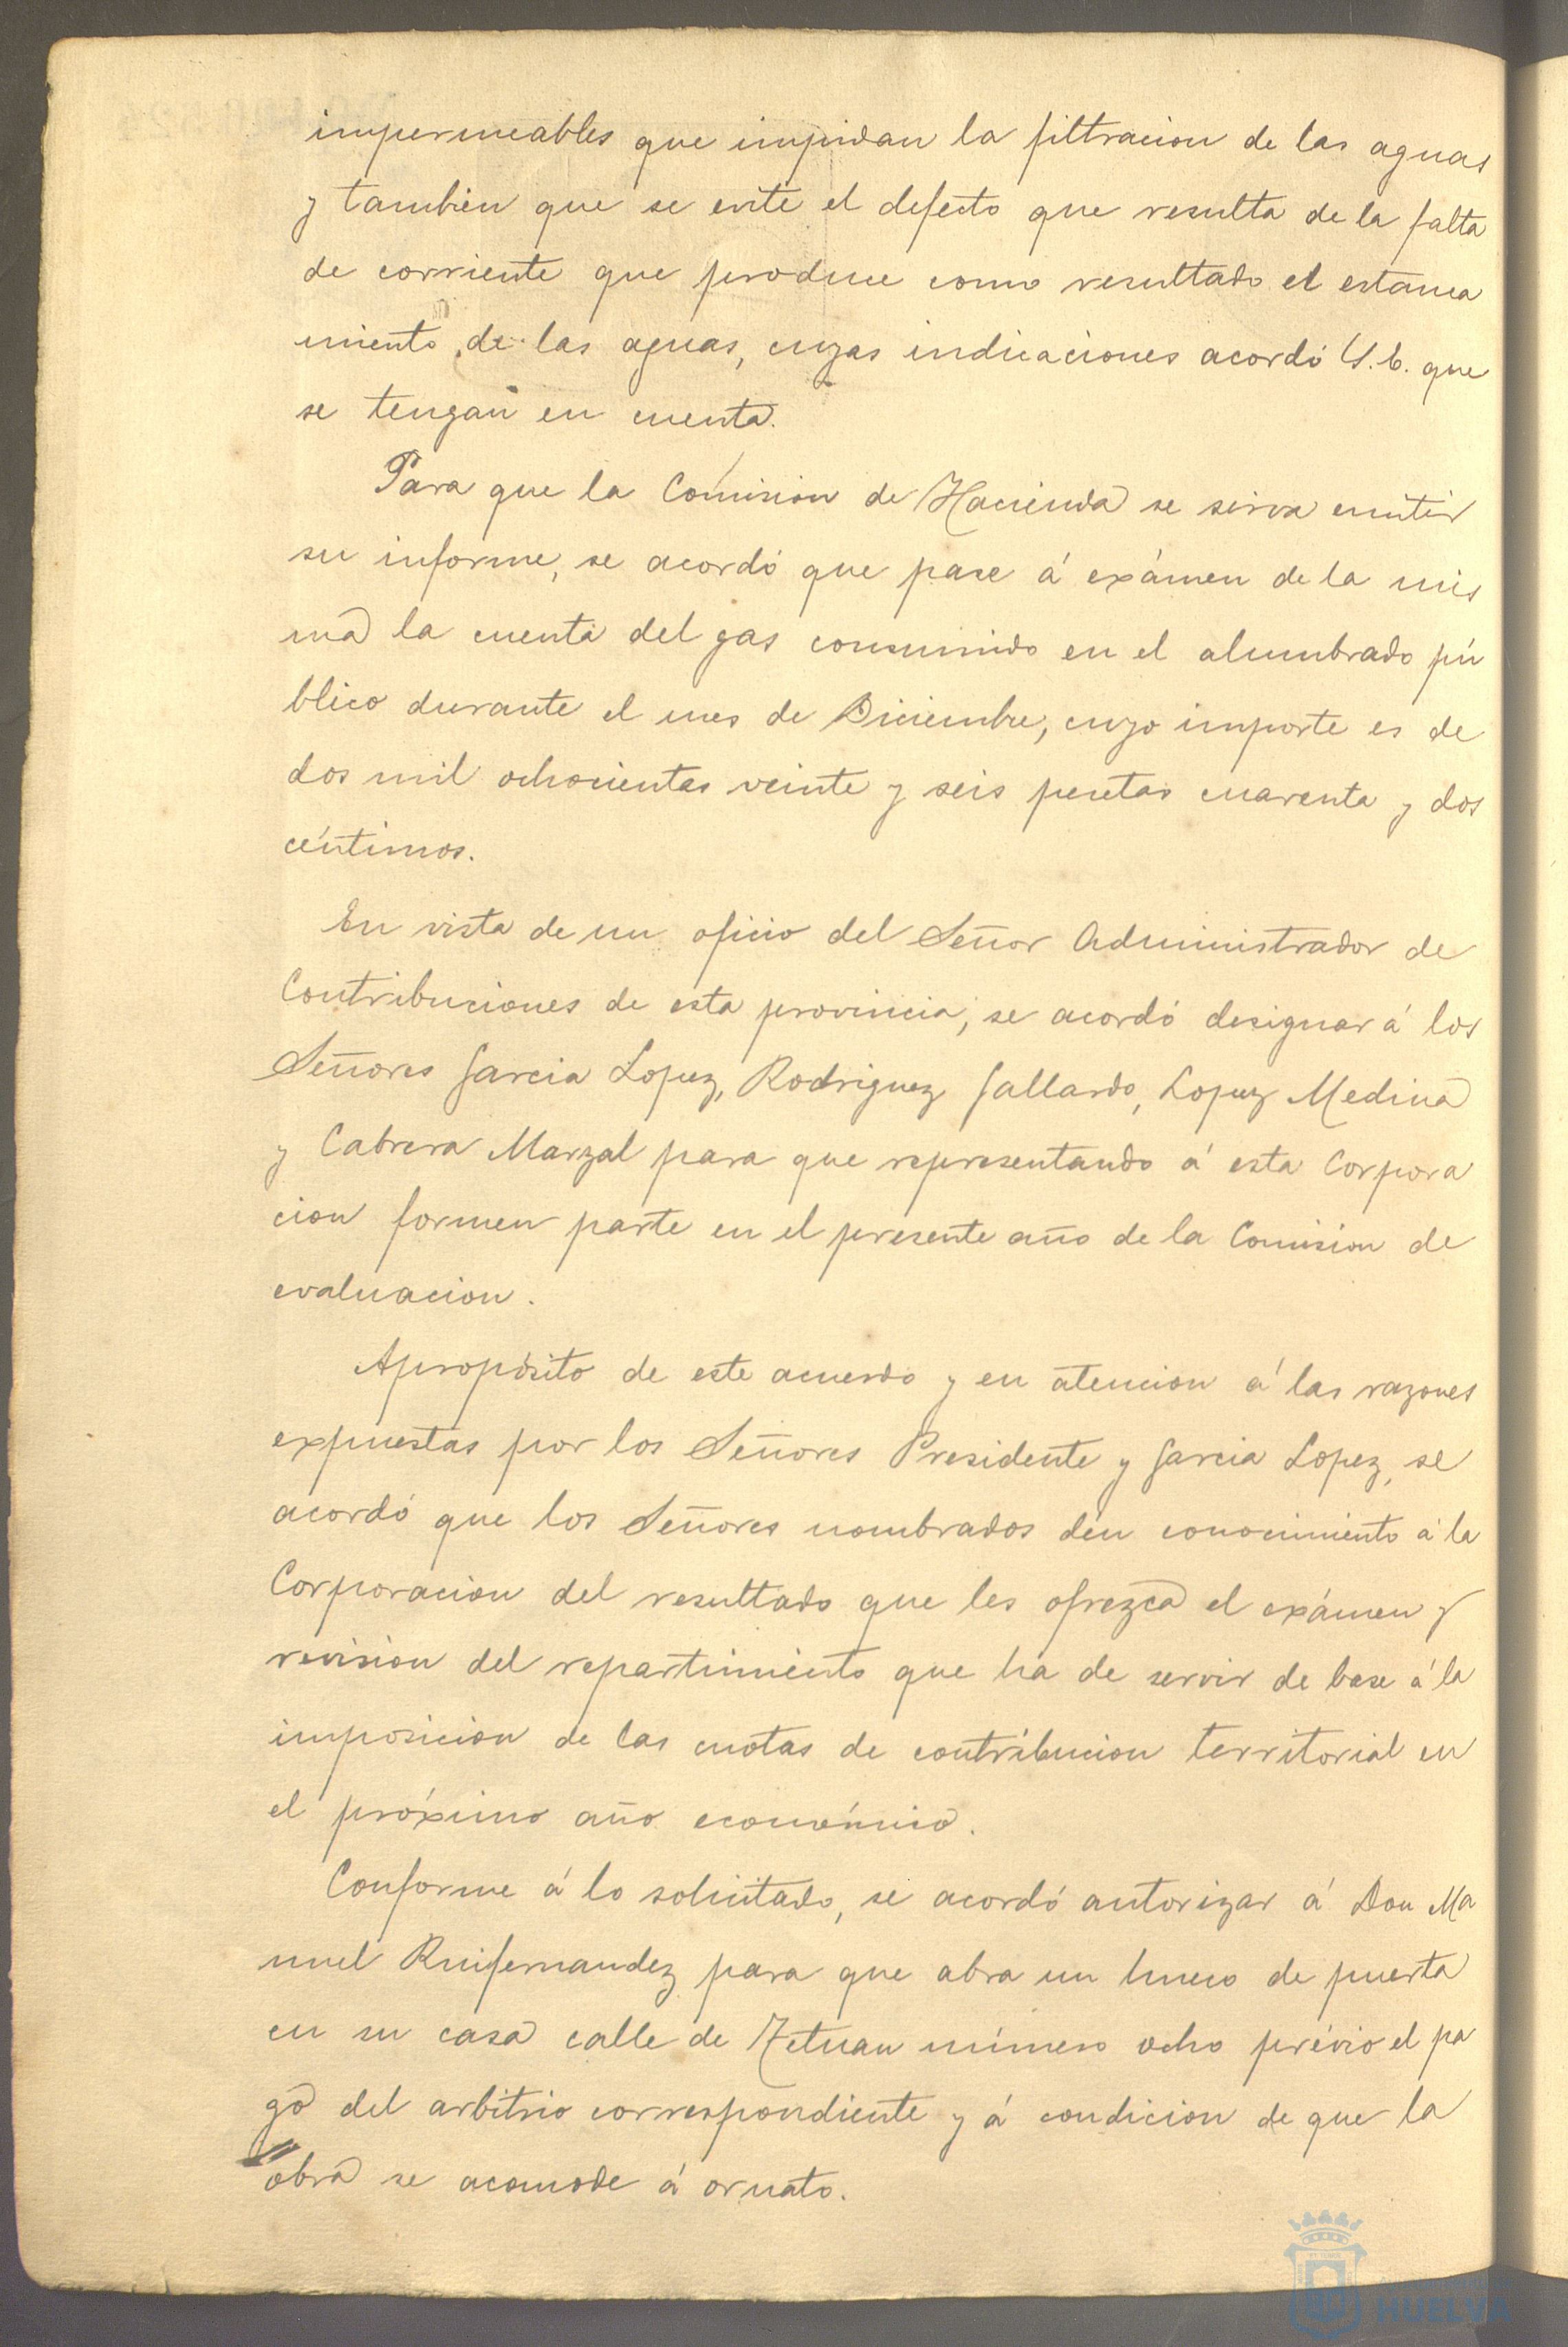 impermeables que impidan la filtracion de las aguas
y tambien que se evite el defecto que resulta de la falta
de corriente que produce como resultado el estanca
miento de las aguas, cuyas indicaciones acordó S. E. que
se tengan en cuenta.
Para que la Comision de Hacienda se sirva emitir
su informe, se acordó que pase á exámen de la mis
ma la cuenta del gas consumido en el alumbrado pú
blico durante el mes de Diciembre, cuyo importe es de
dos mil ochocientas veinte y seis pesetas cuarenta y dos
céntimos.
En vista de un oficio del Señor Administrador de
Contribuciones de esta provincia, se acordó designar á los
Señores Garcia Lopez, Rodriguez Gallardo, Lopez Medina
y Cabrera Marzal para que representando á esta Corpora
cion formen parte en el presente año de la Comision de
evaluacion.
Apropósito de este acuerdo y en atencion á las razones
expuestas por los Señores Presidente y Garcia Lopez, se
acordó que los Señores nombrados den conocimiento á la
Corporacion del resultado que les ofrezca el exámen y
revision del repartimiento que ha de servir de base á la
imposicion de las cuotas de contribucion territorial en
el próximo año económico.
Conforme á lo solicitado, se acordó autorizar á Don Ma
nuel Ruifernandez para que abra un hueco de puerta
en su casa calle de Tetuan número ocho prévio el pa
go del arbitrio correspondiente y á condicion de que la
obra se acomode á ornato.
HUELVA